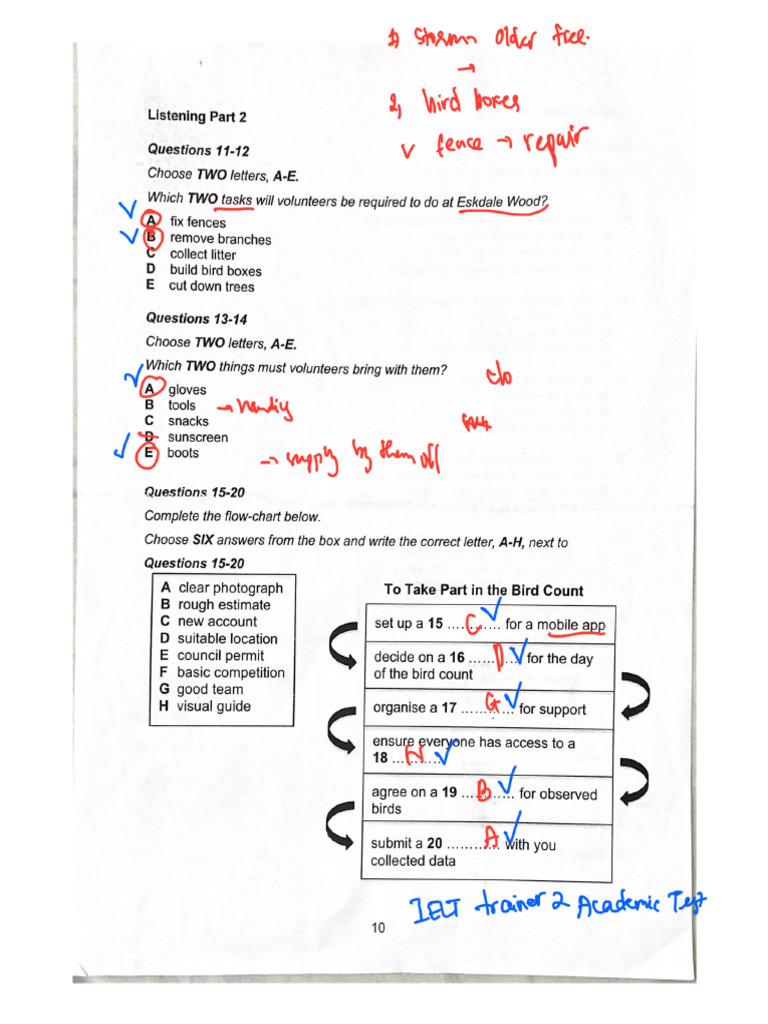 1) storm older tree.
→
2, bird boxes
v fence → repair
Listening Part 2
Questions 11-12
Choose TWO letters, A-E.
Which TWO tasks will volunteers be required to do at Eskdale Wood?
A fix fences
B remove branches
C collect litter
D build bird boxes
E cut down trees
Questions 13-14
Choose TWO letters, A-E.
Which TWO things must volunteers bring with them?
A gloves
B tools →
C snacks
D sunscreen
E boots → supply by them off
Questions 15-20
Complete the flow-chart below.
Choose SIX answers from the box and write the correct letter, A-H, next to
Questions 15-20
A clear photograph
B rough estimate
C new account
D suitable location
E council permit
F basic competition
G good team
H visual guide
To Take Part in the Bird Count
set up a 15 ....C.... for a mobile app
decide on a 16 ....D.... for the day
of the bird count
organise a 17 ....G.... for support
ensure everyone has access to a
18 ....H....
agree on a 19 ....B.... for observed
birds
submit a 20 ....A.... with you
collected data
IELT trainer 2 Academic Test
10